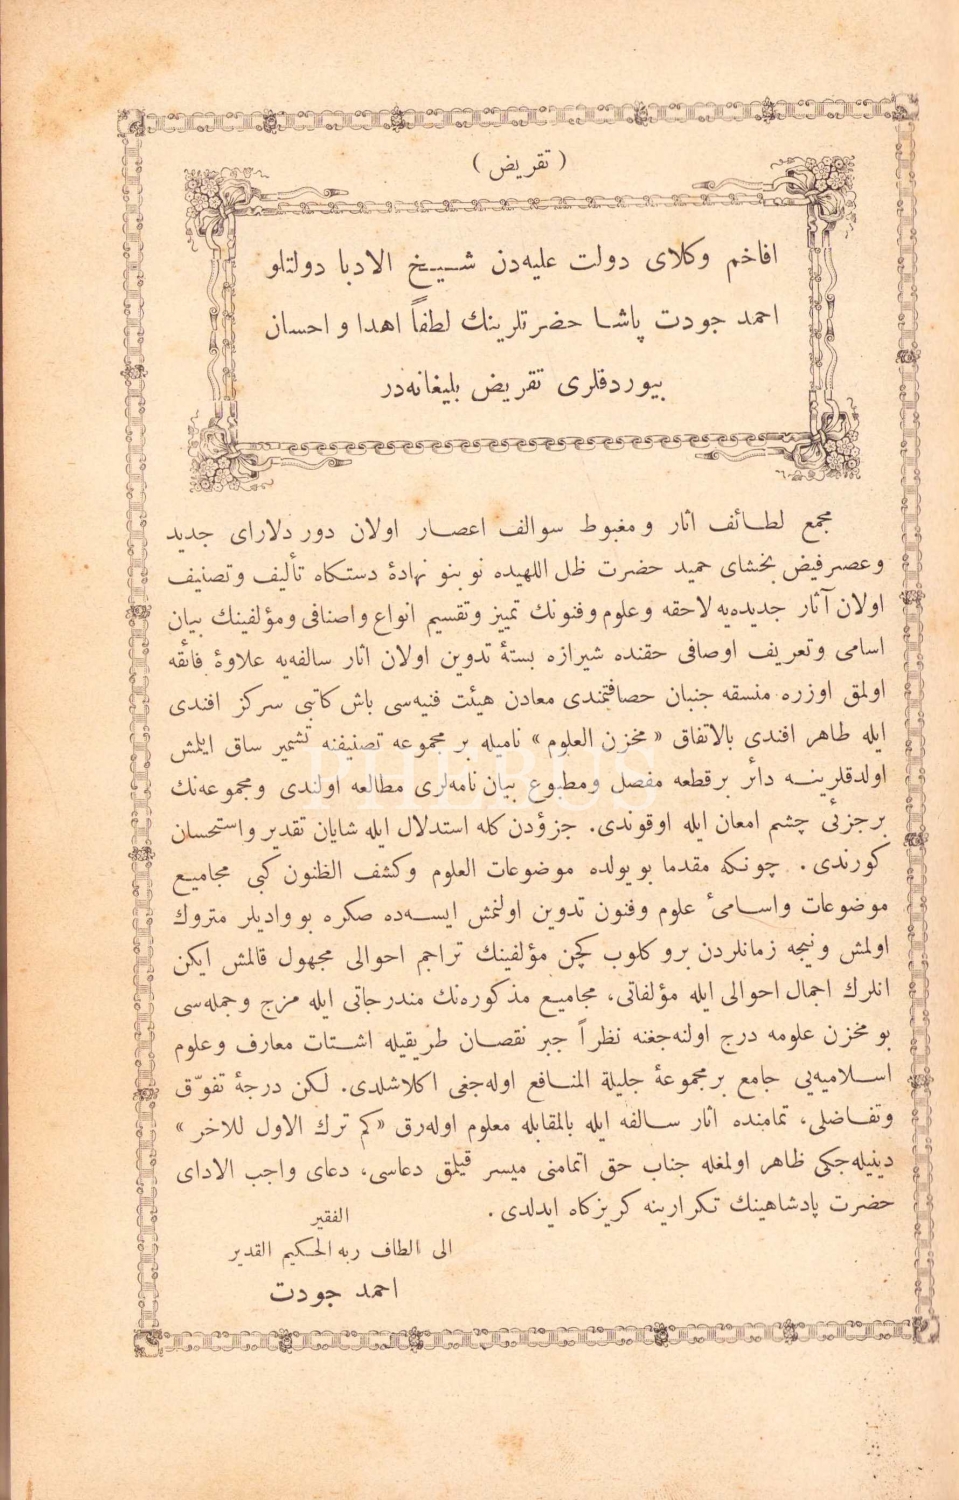 ( تقريض )
افاخم وكلاى دولت عليه‌دن شيخ الادبا دولتلو
احمد جودت پاشا حضرتلرينك لطفاً اهدا و احسان
بيوردقلرى تقريض بليغانه‌در
مجمع لطائف اثار و مغبوط سوالف اعصار اولان دور دلاراى جديد
وعصر فيض بخشاى حميد حضرت ظل اللهيده نو بنو نهادۀ دستكاه تأليف وتصنيف
اولان آثار جديده‌يه لاحقه وعلوم وفنونك تمييز وتقسيم انواع واصنافى ومؤلفينك بيان
اسامى وتعريف اوصافى حقنده شيرازه بستۀ تدوين اولان اثار سالفه‌يه علاوۀ فائقه
اولمق اوزره منسقه جنبان حصافتمندى معادن هيئت فنيه‌سى باش كاتبى سركز افندى
ايله طاهر افندى بالاتفاق « مخزن العلوم » ناميله بر مجموعه تصنيفنه تشمير ساق ايلمش
اولدقلرينه دائر بر قطعه مفصل ومطبوع بيان نامه‌لرى مطالعه اولندى ومجموعه‌نك
بر جزئى چشم امعان ايله اوقوندى. جزؤدن كله استدلال ايله شايان تقدير واستحسان
كورندى . چونكه مقدما بو يولده موضوعات العلوم وكشف الظنون كبى مجاميع
موضوعات واسامىٔ علوم وفنون تدوين اولنمش ايسه‌ده صكره بو واديلر متروك
اولمش ونيجه زمانلردن برو كلوب كچن مؤلفينك تراجم احوالى مجهول قالمش ايكن
انلرك اجمال احوالى ايله مؤلفاتى، مجاميع مذكوره‌نك مندرجاتى ايله مزج وجمله‌سى
بو مخزن علومه درج اولنه‌جغنه نظراً جبر نقصان طريقيله اشتات معارف وعلوم
اسلاميه‌يى جامع بر مجموعۀ جليلة المنافع اوله‌جغى اكلاشلدى. لكن درجۀ تفوّق
وتفاضلى، تمامنده اثار سالفه ايله بالمقابله معلوم اوله‌رق « كم ترك الاول للاخر »
دينيله‌جكى ظاهر اولمغله جناب حق اتمامنى ميسر قيلمق دعاسى، دعاى واجب الاداى
حضرت پادشاهينك تكرارينه كريزكاه ايدلدى .
الفقير
الى الطاف ربه الحكيم القدير
احمد جودت
PHEBUS